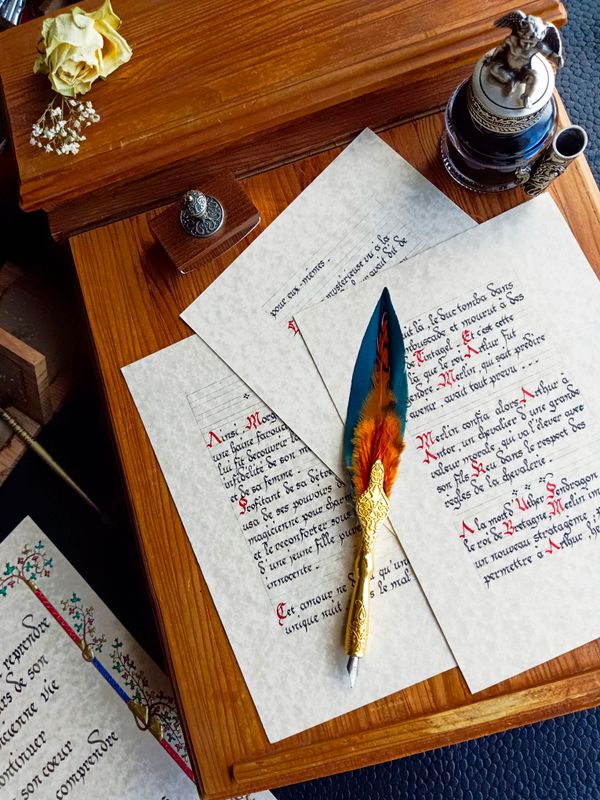 pour eux-mêmes.
mystérieuse
avait dit de
uit là, le duc tomba dans
mbuscade et mourut à des
Tintagel. Et c'est cette
là que le roi Arthur fut
gendré. Merlin, qui sait prédire
avenir, avait tout prévu...
Merlin confia alors Arthur à
Antor, un chevalier d'une grande
valeur morale, qui va l'élever avec
son fils Keu dans le respect des
règles de la chevalerie.
A la mort d'Uther Pendragon
le roi de Bretagne, Merlin im
un nouveau stratagème,
permettre à Arthur, he
Ainsi, Morg
une haine farouc
lui fit découvrir l
infidélité de son m
et de sa femme.
Profitant de sa détre
usa de ses pouvoirs d
magicienne pour charm
et le réconforter sous
d'une jeune fille pu
innocente.
Cet amour ne qu'un
unique nuit le mal
reprendre
rs de son
icienne vie
continuer
son coeur
comprendre